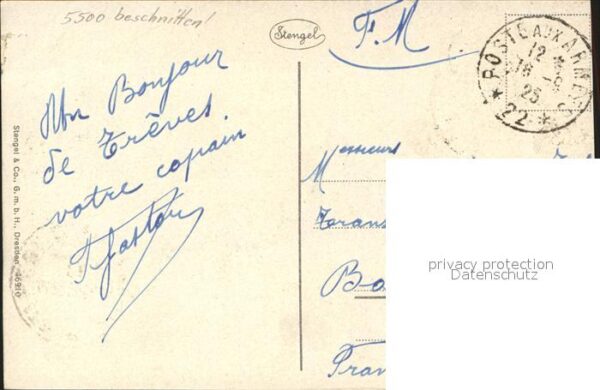 5500 beschnitten!
Stengel
F. M
* POSTE AUX ARMEES *
12
16 -9
25
22
Un Bonjour
de Trèves
votre copain
Stengel & Co., G. m. b. H., Dresden
Messieurs
Trans
Bo
Fran
privacy protection
Datenschutz